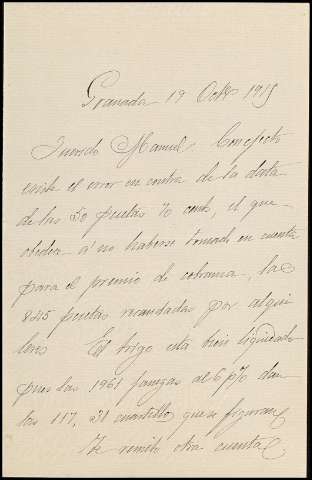 Granada 19 Octe 1915
Querido Manuel Con efecto
existe el error en contra de la data
de las 50 pesetas 70 cents, el que
obedece á no haberse tomado en cuenta
para el premio de cobranza, las
845 pesetas recaudadas por alqui
leres El trigo está bien liquidado
pues las 1961 fanegas al 6 p% dan
las 117, 31 cuartillo que se figuran
Te remito otra cuenta